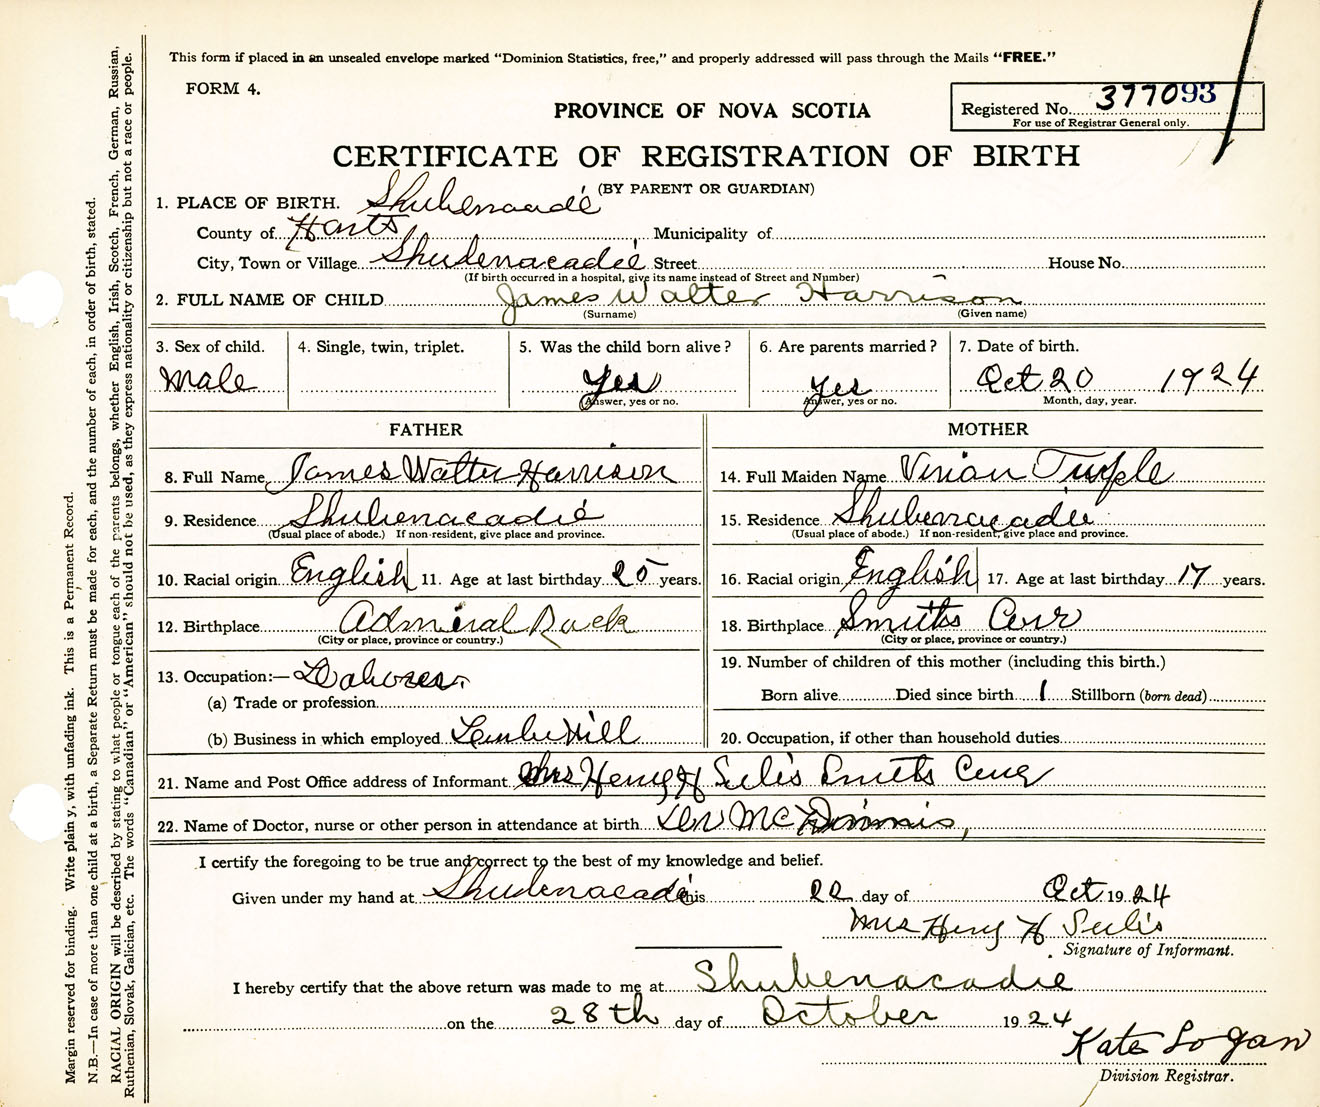 This form if placed in an unsealed envelope marked "Dominion Statistics, free," and properly addressed will pass through the Mails "FREE."
FORM 4.
PROVINCE OF NOVA SCOTIA
Registered No. 377093
For use of Registrar General only.
CERTIFICATE OF REGISTRATION OF BIRTH
(BY PARENT OR GUARDIAN)
1. PLACE OF BIRTH. Shubenacadie
County of Hants Municipality of
City, Town or Village Shubenacadie Street House No.
(If birth occurred in a hospital, give its name instead of Street and Number)
2. FULL NAME OF CHILD James Walter Harrison
(Surname) (Given name)
3. Sex of child. 4. Single, twin, triplet. 5. Was the child born alive? 6. Are parents married? 7. Date of birth.
Male Yes Yes Oct 20 1924
Answer, yes or no. Answer, yes or no. Month, day, year.
FATHER MOTHER
8. Full Name James Walter Harrison 14. Full Maiden Name Vivian Turple
9. Residence Shubenacadie 15. Residence Shubenacadie
(Usual place of abode.) If non-resident, give place and province. (Usual place of abode.) If non-resident, give place and province.
10. Racial origin English 11. Age at last birthday 25 years. 16. Racial origin English 17. Age at last birthday 17 years.
12. Birthplace Admiral Rock 18. Birthplace Smiths Corr
(City or place, province or country.) (City or place, province or country.)
13. Occupation:— 19. Number of children of this mother (including this birth.)
(a) Trade or profession Born alive Died since birth 1 Stillborn (born dead)
(b) Business in which employed Mill 20. Occupation, if other than household duties
21. Name and Post Office address of Informant Mrs Henry H Smiths
22. Name of Doctor, nurse or other person in attendance at birth Mc
I certify the foregoing to be true and correct to the best of my knowledge and belief.
Given under my hand at Shubenacadie this 22 day of Oct 1924
Mrs Henry H
Signature of Informant.
I hereby certify that the above return was made to me at Shubenacadie
on the 28th day of October 1924
Kate Logan
Division Registrar.
Margin reserved for binding. Write plain y, with unfading ink. This is a Permanent Record.
N.B.—In case of more than one child at a birth, a Separate Return must be made for each, and the number of each, in order of birth, stated.
RACIAL ORIGIN will be described by stating to what people or tongue each of the parents belongs, whether English, Irish, Scotch, French, German, Russian,
Ruthenian, Slovak, Galician, etc. The words "Canadian" or "American" should not be used, as they express nationality or citizenship but not a race or people.